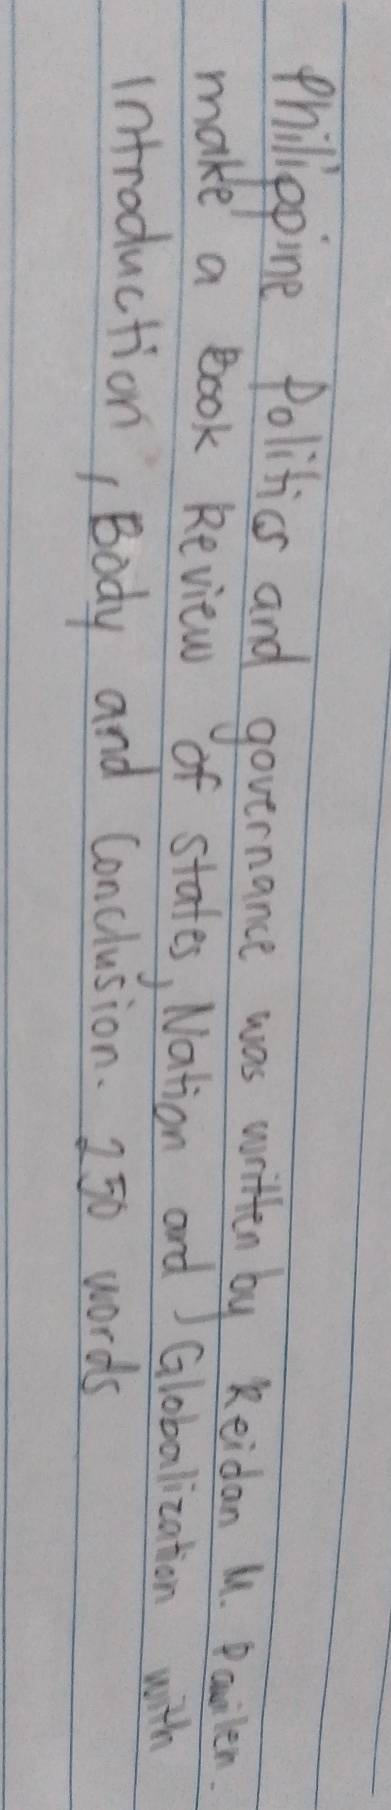 Philippine Politics and governance was written by Reidan M. Pawilen.
make a Book Review of States, Nation and Globalization with
Introduction, Body and Conclusion. 250 words